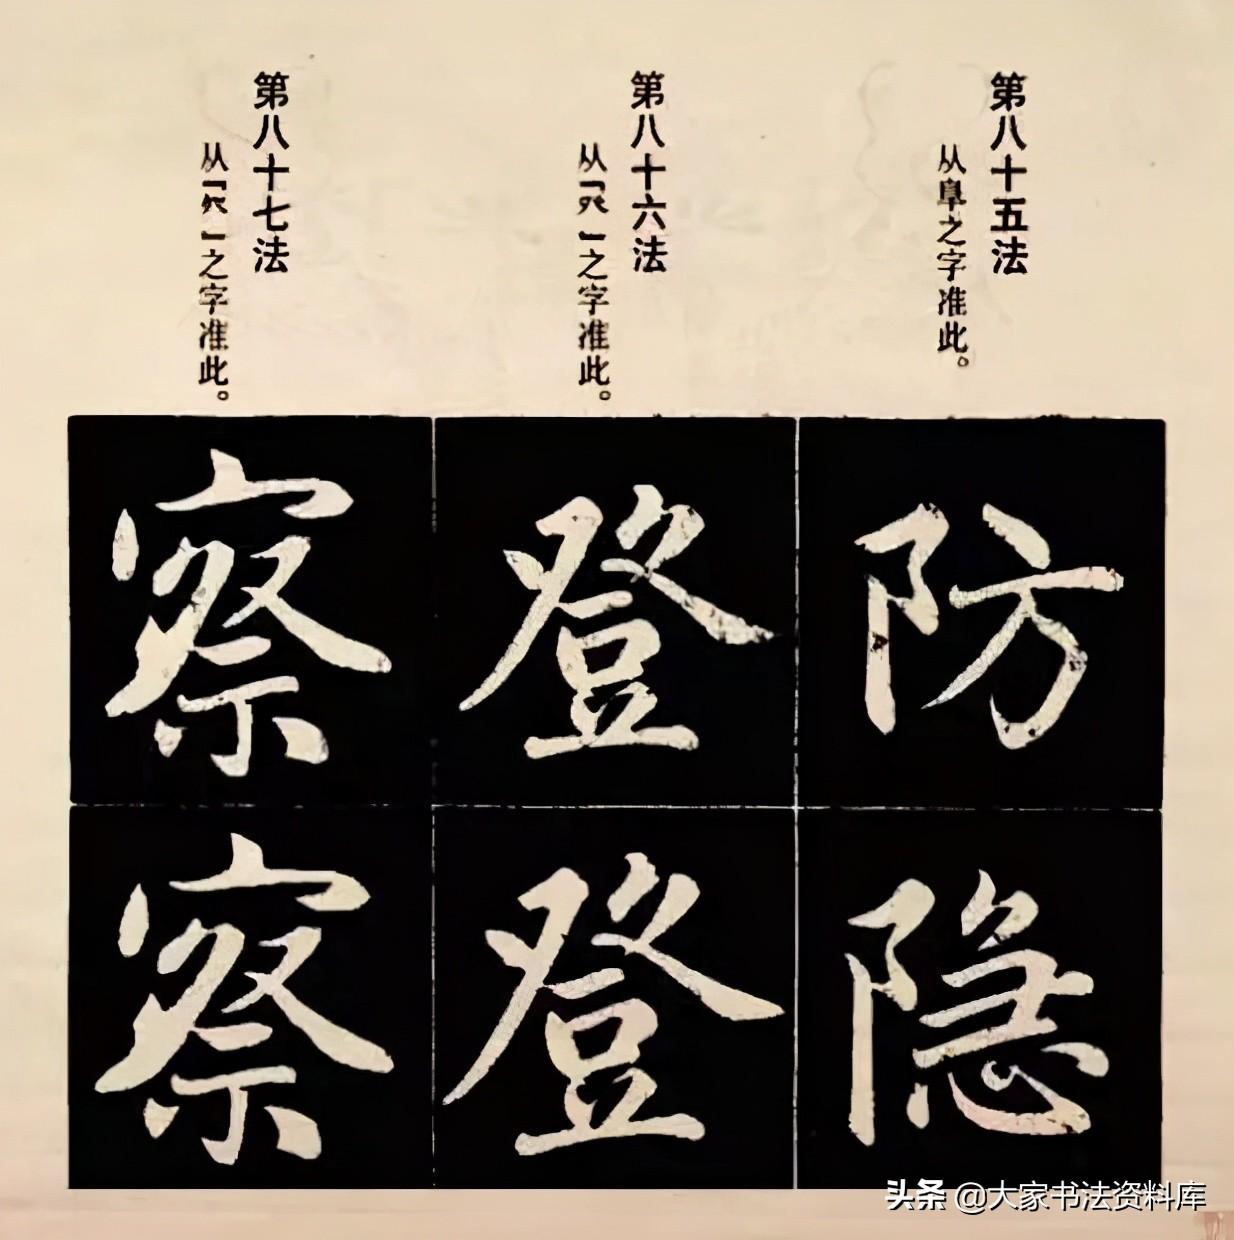 第八十五法
从阜之字准此。
第八十六法
从「癶」之字准此。
第八十七法
从「」之字准此。
防
隐
登
登
察
察
头条 @大家书法资料库